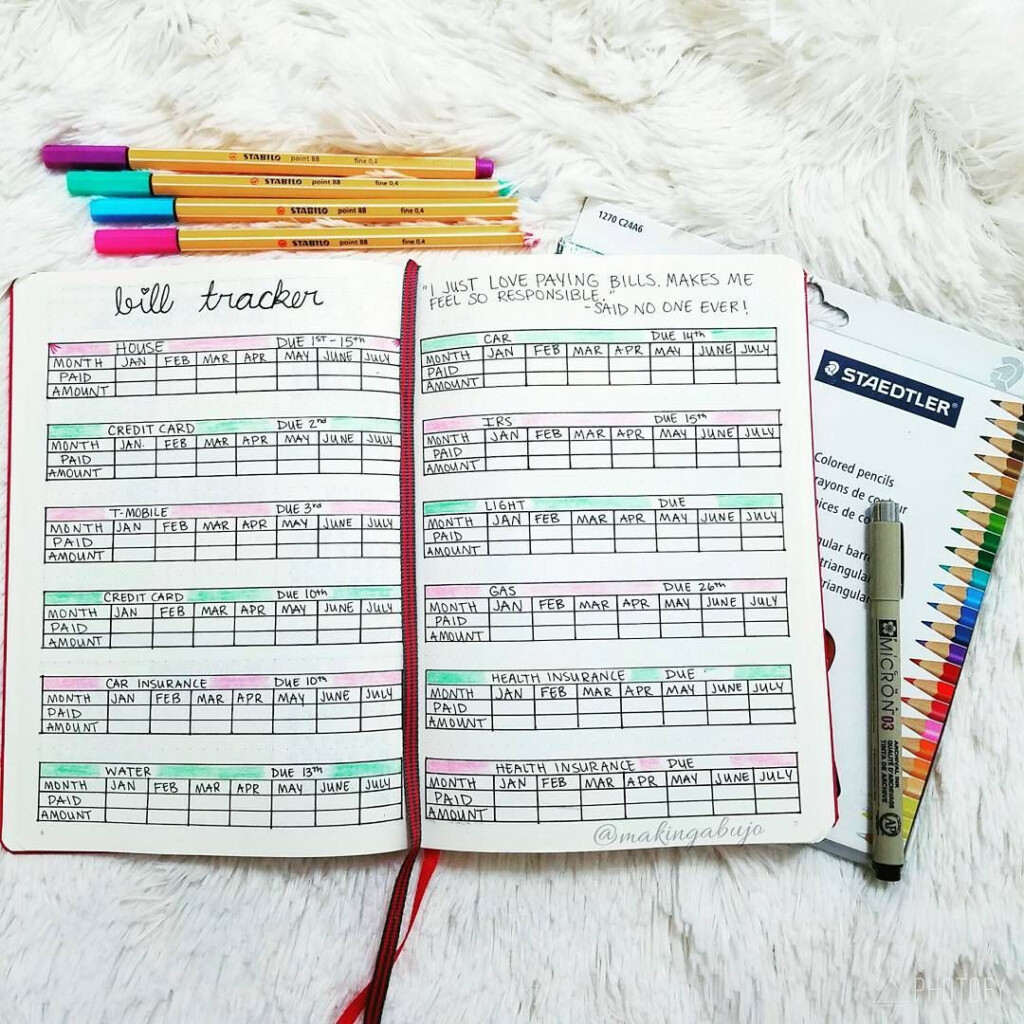 STABILO point 88 fine 0,4
STABILO point 88 fine 0,4
STABILO point 88 fine 0,4
STABILO point 88 fine 0,4
1270 C24A6
bill tracker
HOUSE DUE 1ST-15th
MONTH JAN FEB MAR APR MAY JUNE JULY
PAID
AMOUNT
CREDIT CARD DUE 2nd
MONTH JAN. FEB MAR APR MAY JUNE JULY
PAID
AMOUNT
T-MOBILE DUE 3rd
MONTH JAN FEB MAR APR MAY JUNE JULY
PAID
AMOUNT
CREDIT CARD DUE 10th
MONTH JAN FEB MAR APR MAY JUNE JULY
PAID
AMOUNT
CAR INSURANCE DUE 10th
MONTH JAN FEB MAR APR MAY JUNE JULY
PAID
AMOUNT
WATER DUE 13th
MONTH JAN FEB MAR APR MAY JUNE JULY
PAID
AMOUNT
6
"I JUST LOVE PAYING BILLS, MAKES ME
FEEL SO RESPONSIBLE."
-SAID NO ONE EVER!
CAR DUE 14th
MONTH JAN FEB MAR APR MAY JUNE JULY
PAID
AMOUNT
IRS DUE 15th
MONTH JAN FEB MAR APR MAY JUNE JULY
PAID
AMOUNT
LIGHT DUE
MONTH JAN FEB MAR APR MAY JUNE JULY
PAID
AMOUNT
GAS DUE 26th
MONTH JAN FEB MAR APR MAY JUNE JULY
PAID
AMOUNT
HEALTH INSURANCE DUE
MONTH JAN FEB MAR APR MAY JUNE JULY
PAID
AMOUNT
HEALTH INSURANCE DUE
MONTH JAN FEB MAR APR MAY JUNE JULY
PAID
AMOUNT
@makingabujo
STAEDTLER
Colored pencils
rayons de
de
MICRON 03
ARCHIVAL INK
AP
PHOTOFY